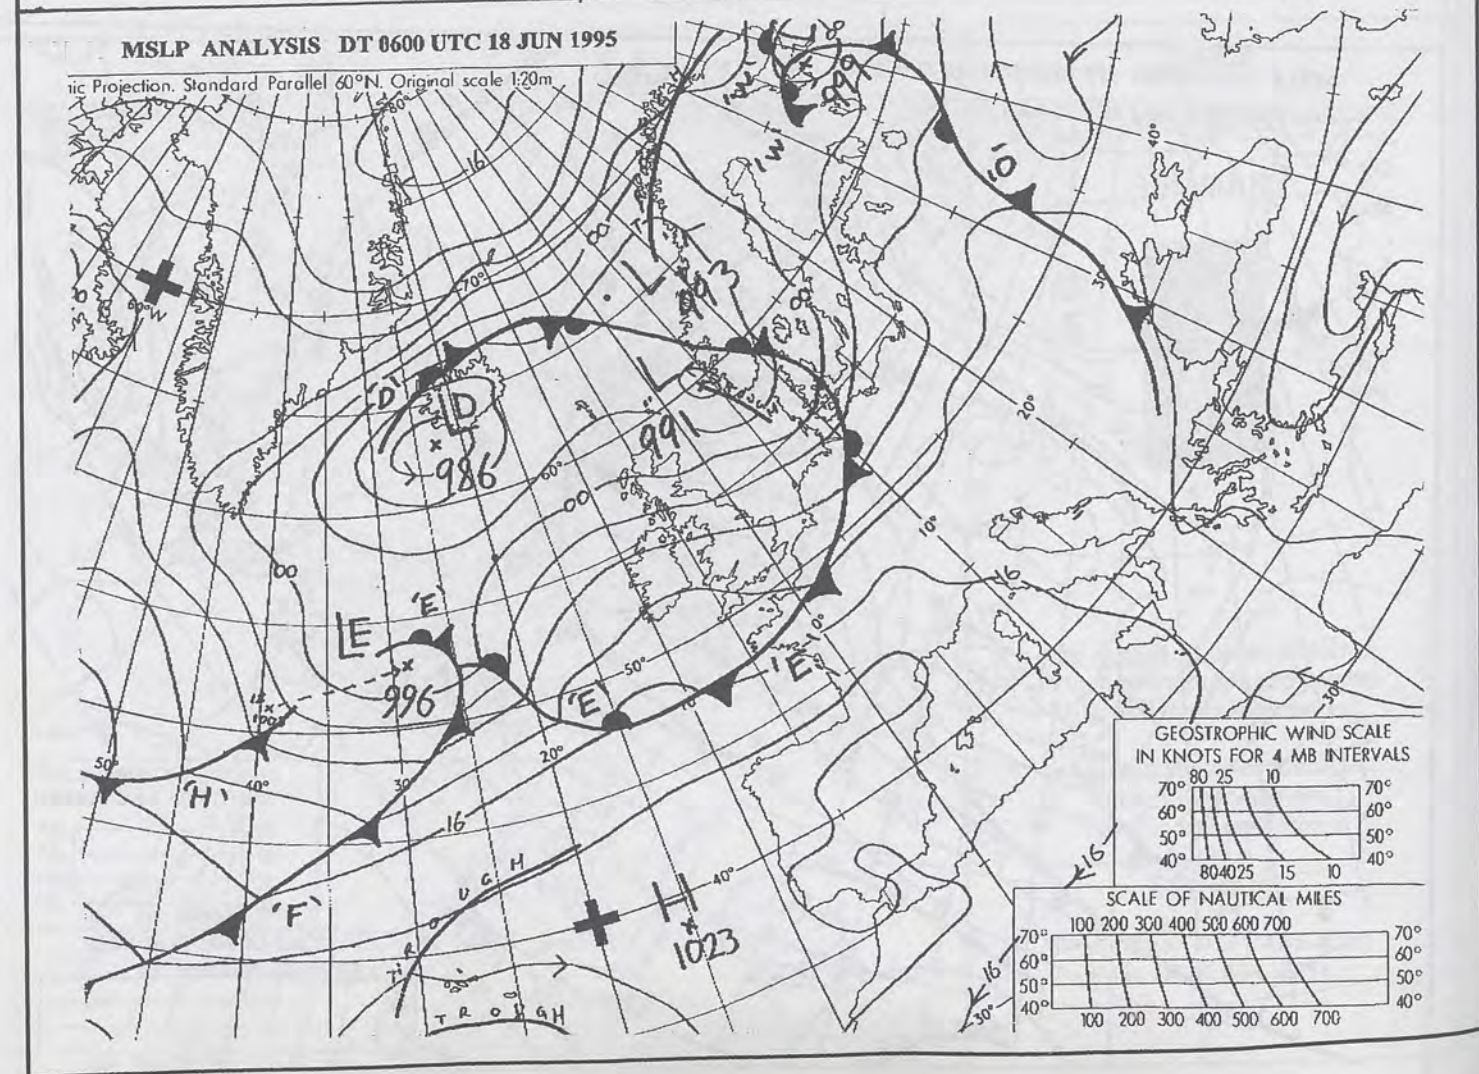 MSLP ANALYSIS DT 0600 UTC 18 JUN 1995
ic Projection. Standard Parallel 60°N. Original scale 1:20m
80°
16
992
'W'
'W'
40°
'O'
00
70°
60°W
L
993
30°
00
'D'
LD
986
L
991
60°
00
20°
10°
00
LE
'E'
996
16
10°
'E'
50°
'E'
10
20°
30°
50°
40°
'H'
16
'F'
TROUGH
H
1023
40°
TROUGH
30°
GEOSTROPHIC WIND SCALE
IN KNOTS FOR 4 MB INTERVALS
80 25 10
70° 70°
60° 60°
50° 50°
40° 40°
80 40 25 15 10
16
SCALE OF NAUTICAL MILES
100 200 300 400 500 600 700
70° 70°
60° 60°
50° 50°
40° 40°
100 200 300 400 500 600 700
16
30°